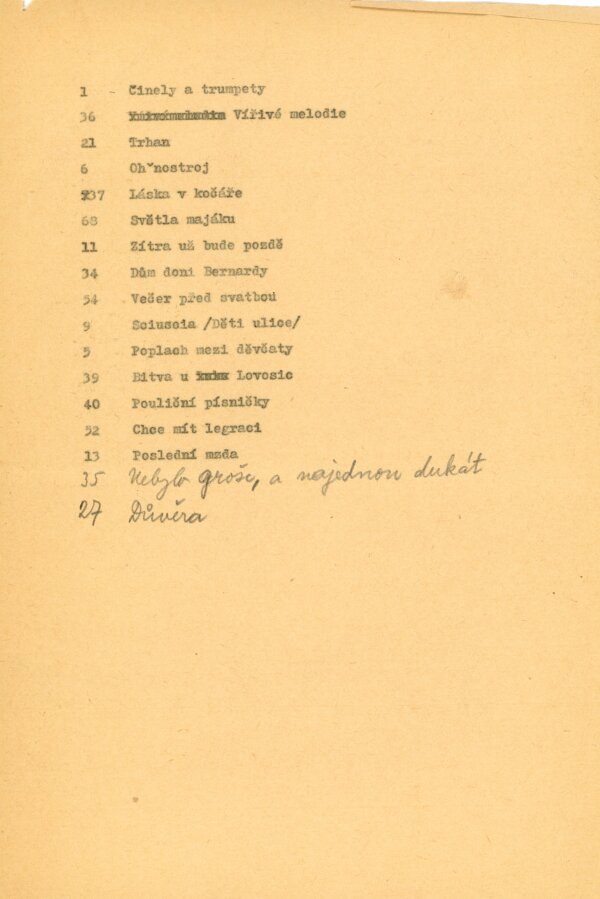 1 - Činely a trumpety
36 Vířivé melodie
21 Trhan
6 Ohˇnostroj
237 Láska v kočáře
68 Světla majáku
11 Zítra už bude pozdě
34 Dům doni Bernardy
54 Večer před svatbou
9 Sciuscia /Děti ulice/
5 Poplach mezi děvčaty
39 Bitva u Lovosic
40 Pouliční písničky
52 Chce mít legraci
13 Poslední mzda
35 Nebylo groše, a najednou dukát
27 Důvěra